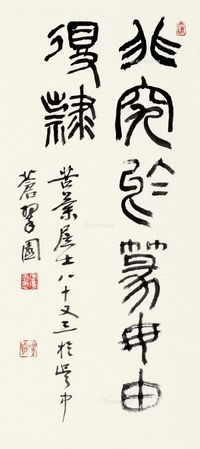 非究於篆毋由
得隸
苦葉居士八十又三於吴中
蒼翠園